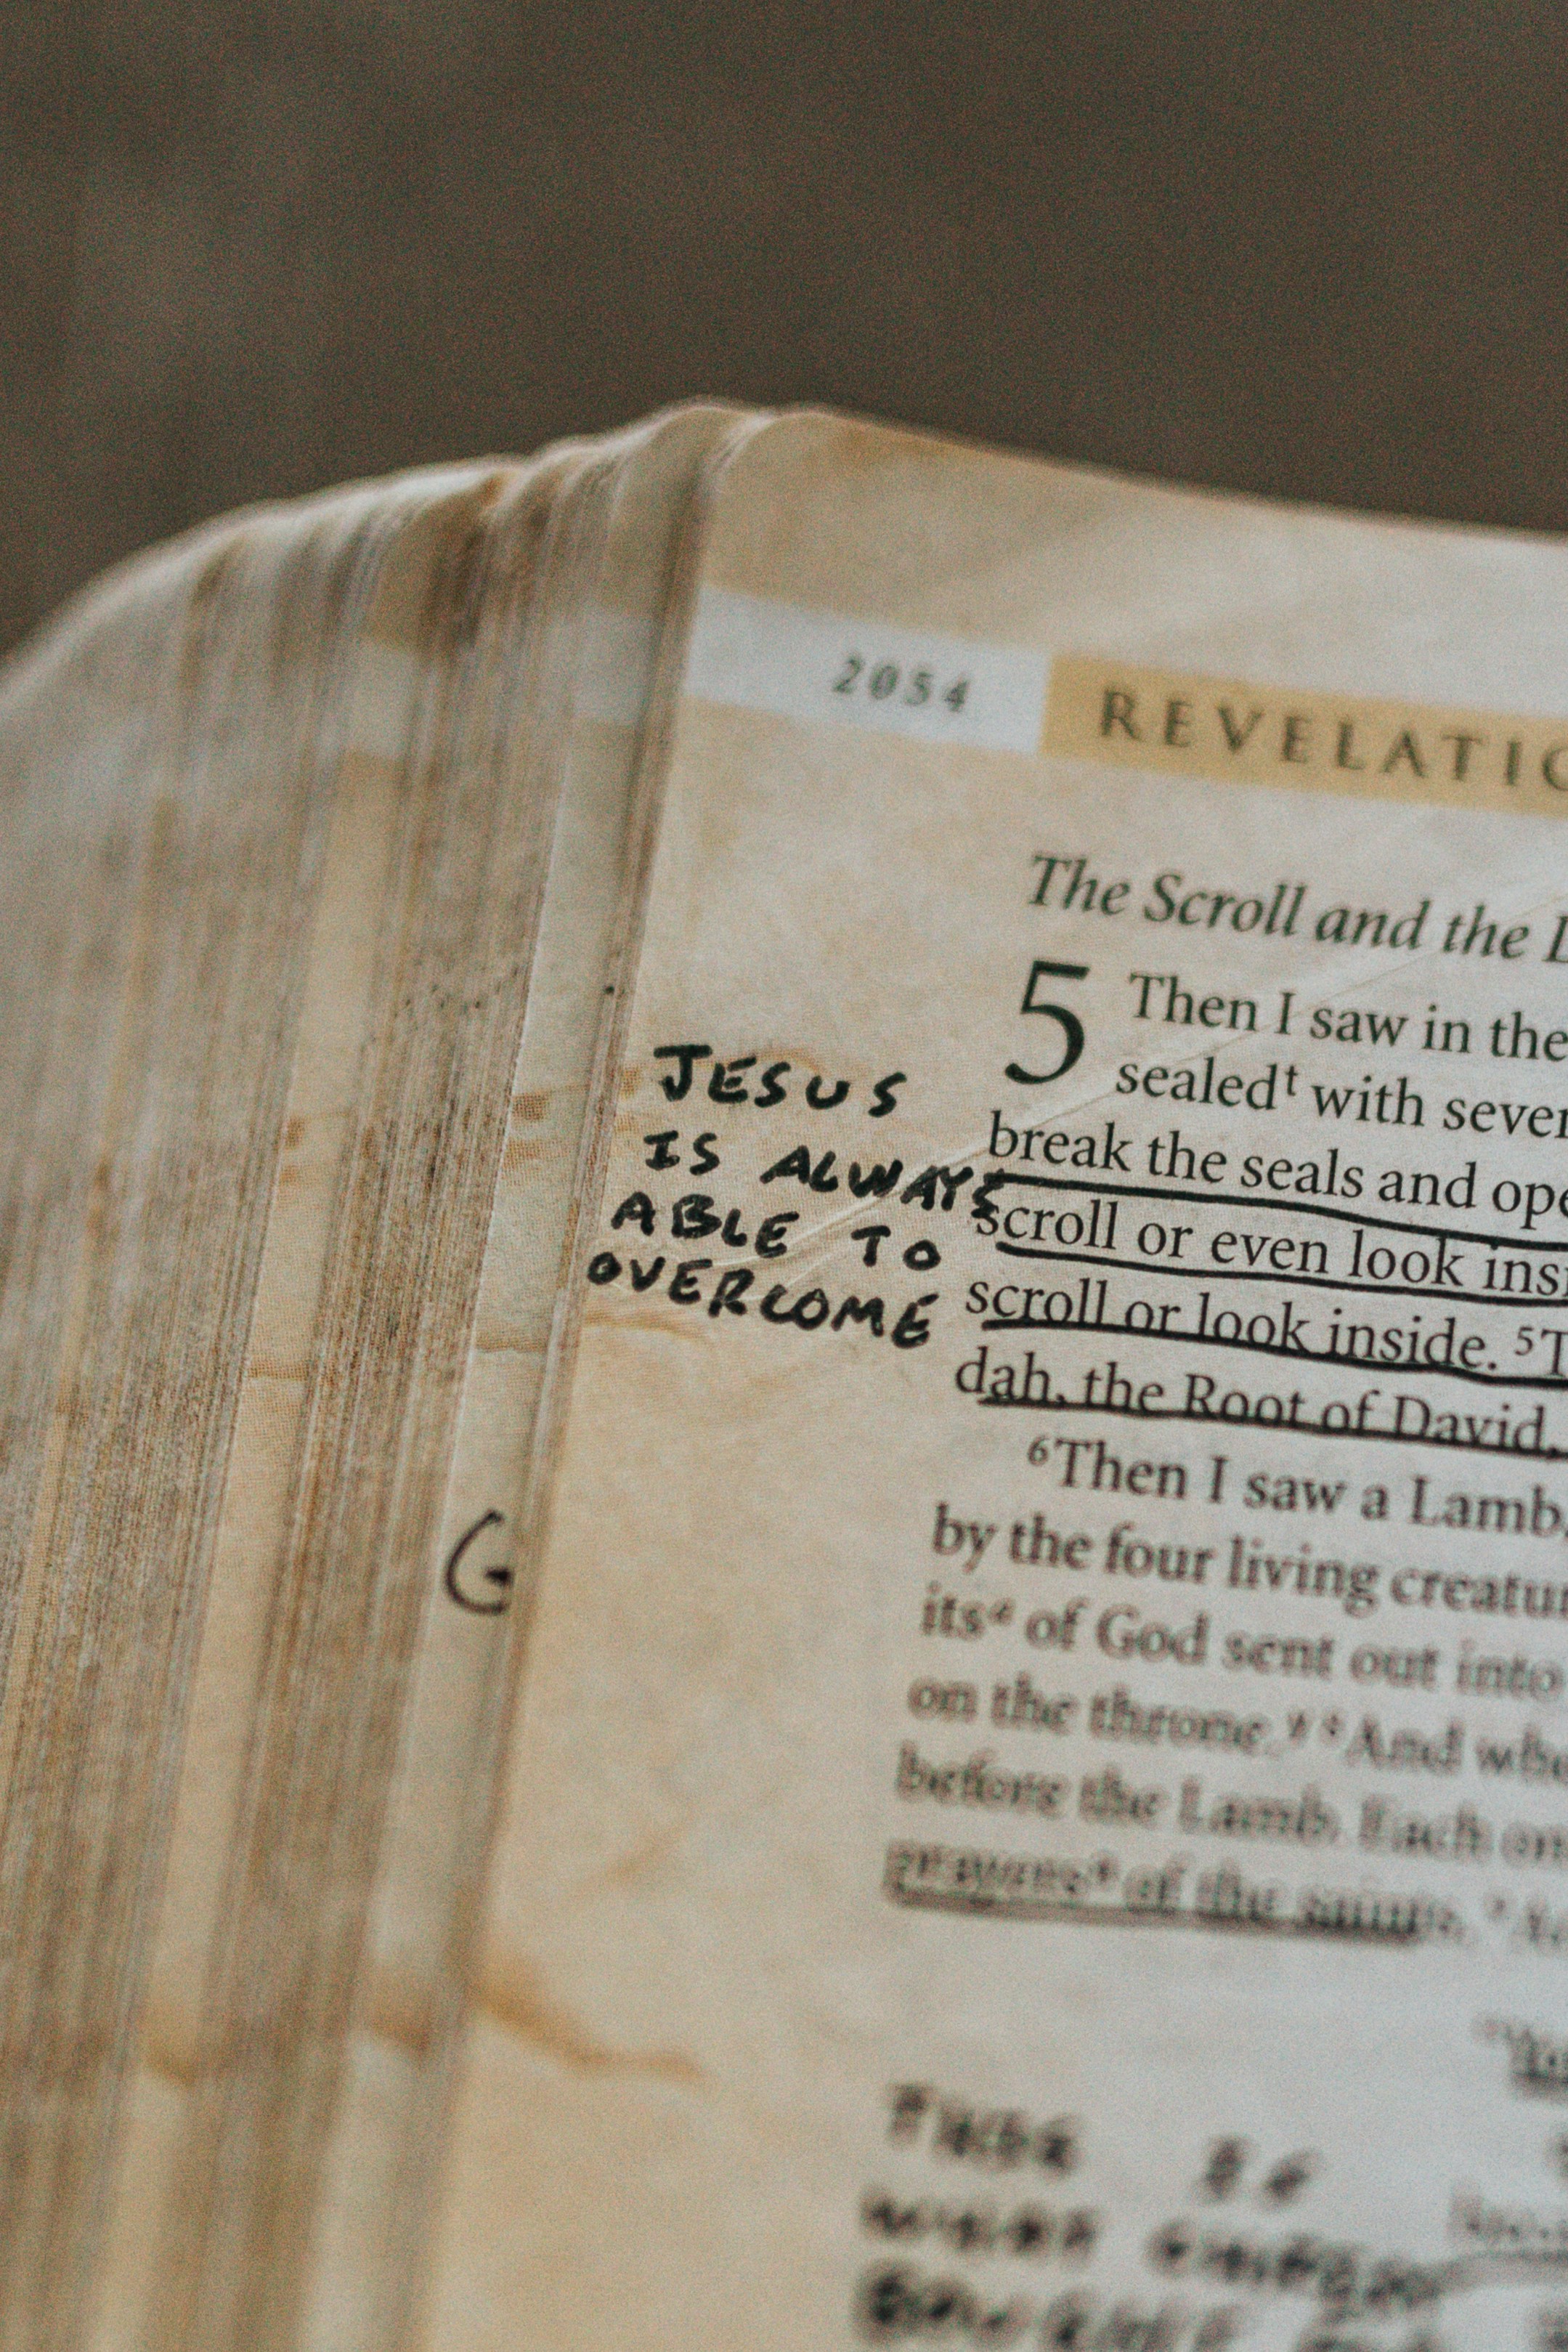 2054 REVELATIO
The Scroll and the L
5 Then I saw in the
sealedᵗ with seven
break the seals and ope
scroll or even look insi
scroll or look inside. ⁵T
dah, the Root of David,
⁶Then I saw a Lamb,
by the four living creatur
itsᵃ of God sent out into
on the throne. And whe
before the Lamb. Each on
prayers of the saints.
JESUS
IS ALWAYS
ABLE TO
OVERCOME
G
THIS IS